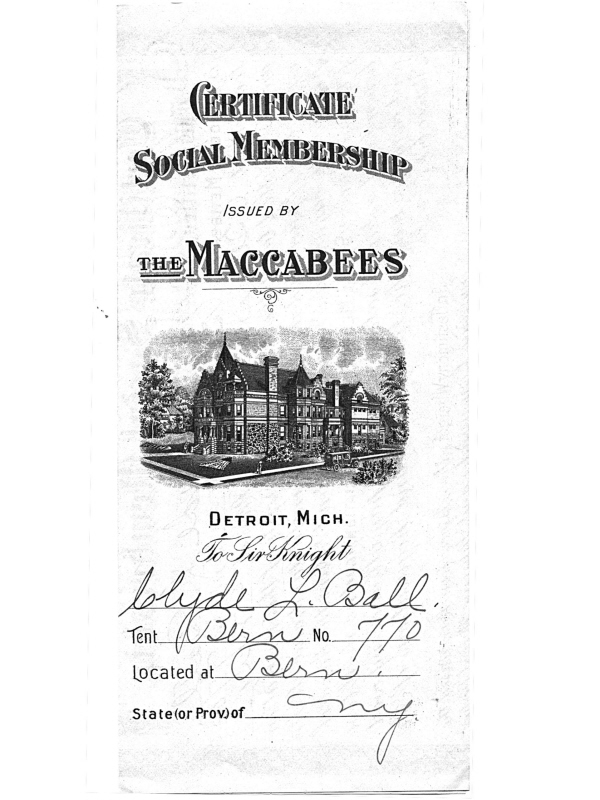 CERTIFICATE
SOCIAL MEMBERSHIP
ISSUED BY
THE MACCABEES
DETROIT, MICH.
To Sir Knight
Clyde L. Ball.
Tent Bern No. 770
Located at Bern.
State (or Prov.) of NY.